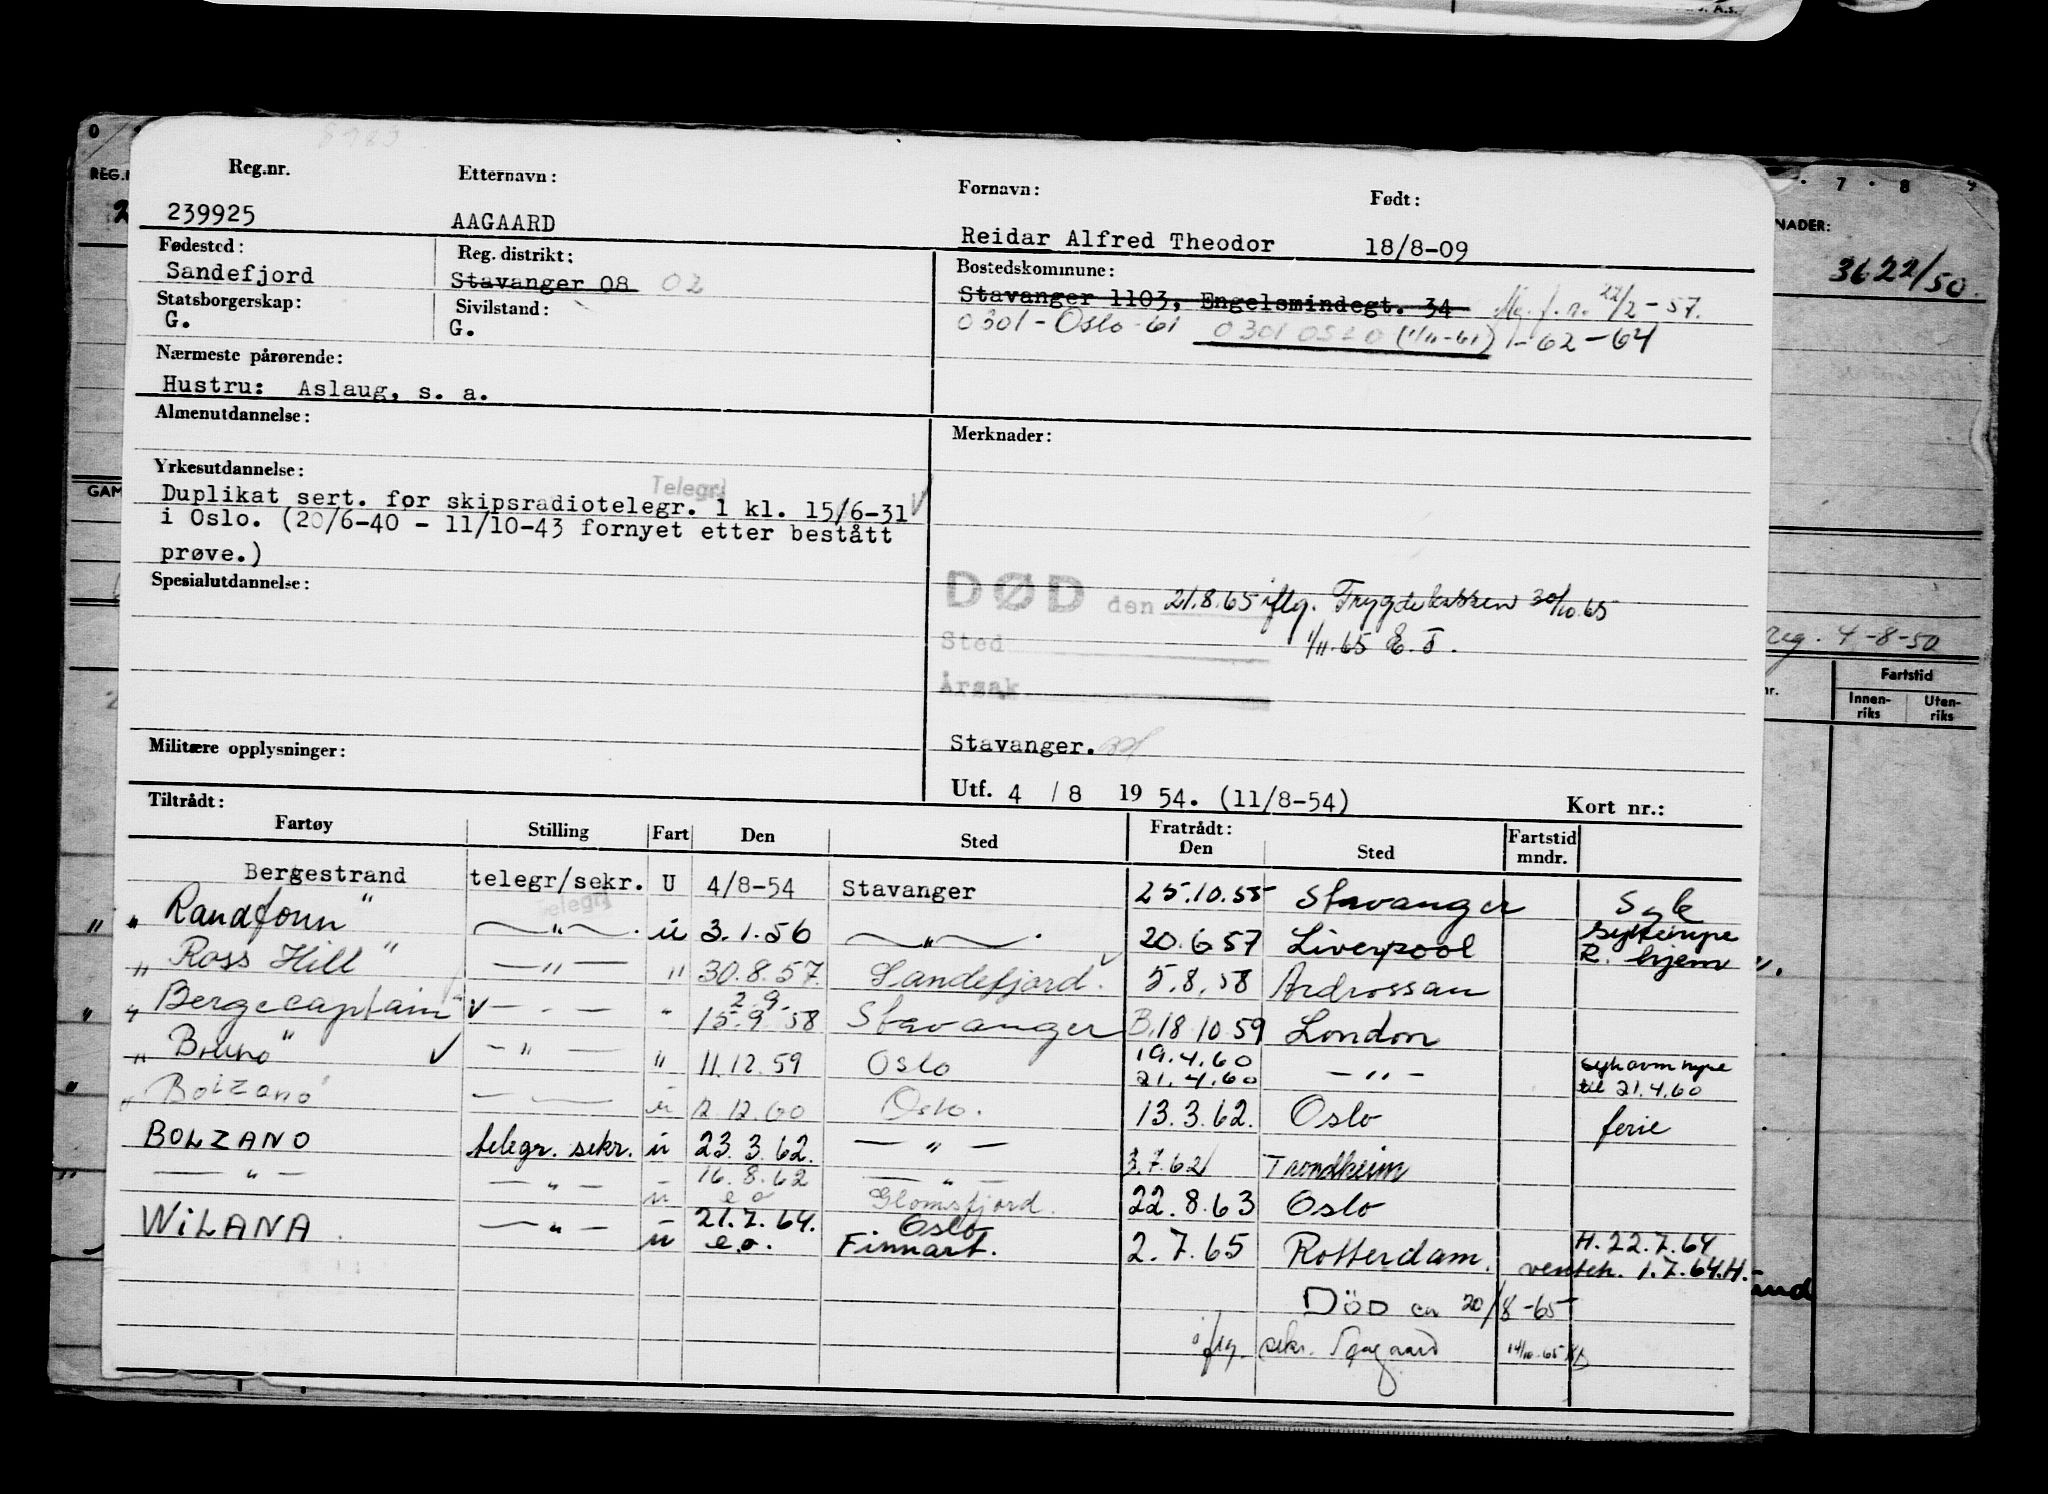 Reg.nr. Etternavn: Fornavn: Født:
239925 AAGAARD Reidar Alfred Theodor 18/8-09
Fødested: Reg. distrikt: Bostedskommune:
Sandefjord Stavanger 08 02 Stavanger 1103, Engelsmindegt. 34 22/2-57.
Statsborgerskap: Sivilstand: 0301-Oslo-61 0301 0520 (1/11-61) 1-62-64
G. G.
Nærmeste pårørende:
Hustru: Aslaug, s. a.
Almenutdannelse: Merknader:
Yrkesutdannelse:
Telegr.
Duplikat sert. for skipsradiotelegr. 1 kl. 15/6-31
i Oslo. (20/6-40 - 11/10-43 fornyet etter bestått
prøve.)
Spesialutdannelse:
DØD den 21.8.65 iflg. Trygdekassen 30/10.65
Sted 1/11.65 E.T.
Årsak
Stavanger.
Militære opplysninger:
Utf. 4 / 8 19 54. (11/8-54) Kort nr.:
Tiltrådt: Fratrådt:
Fartøy Stilling Fart Den Sted Den Sted Fartstid mndr.
Bergestrand telegr/sekr. U 4/8-54 Stavanger 25.10.55 Stavanger Syk
"Randfonn" — " — u 3.1.56 — " — 20.6.57 Liverpool R. hjem
"Ross Hill" — " — " 30.8.57. Sandefjord. 5.8.58 Ardrossan
"Bergecaptain" — " — " 2.9. 15.9.58 Stavanger B.18.10.59 London
"Bruno" — " — " 11.12.59 Oslo 19.4.60 21.4.60 — " — til 21.4.60
"Bolzano" — " — u 12.12.60 Oslo. 13.3.62. Oslo ferie
BOLZANO telegr. sekr. u 23.3.62. — " — 3.7.62 Trondheim
— " — — " — u 16.8.62 e o — " — Glomsfjord. 22.8.63 Oslo
WILANA — " — u 21.7.64. e.o. Oslo Finnart. 2.7.65 Rotterdam. H. 22.7.64
ventet. 1.7.64.H.-
DÖD ca 20/8-65
iflg. sekr. Aagaard 14/10-65
REG.N
GAM
7 8 9
NADER:
3622/50.
reg. 4-8-50
Fartstid
nr. Innen-riks Uten-riks